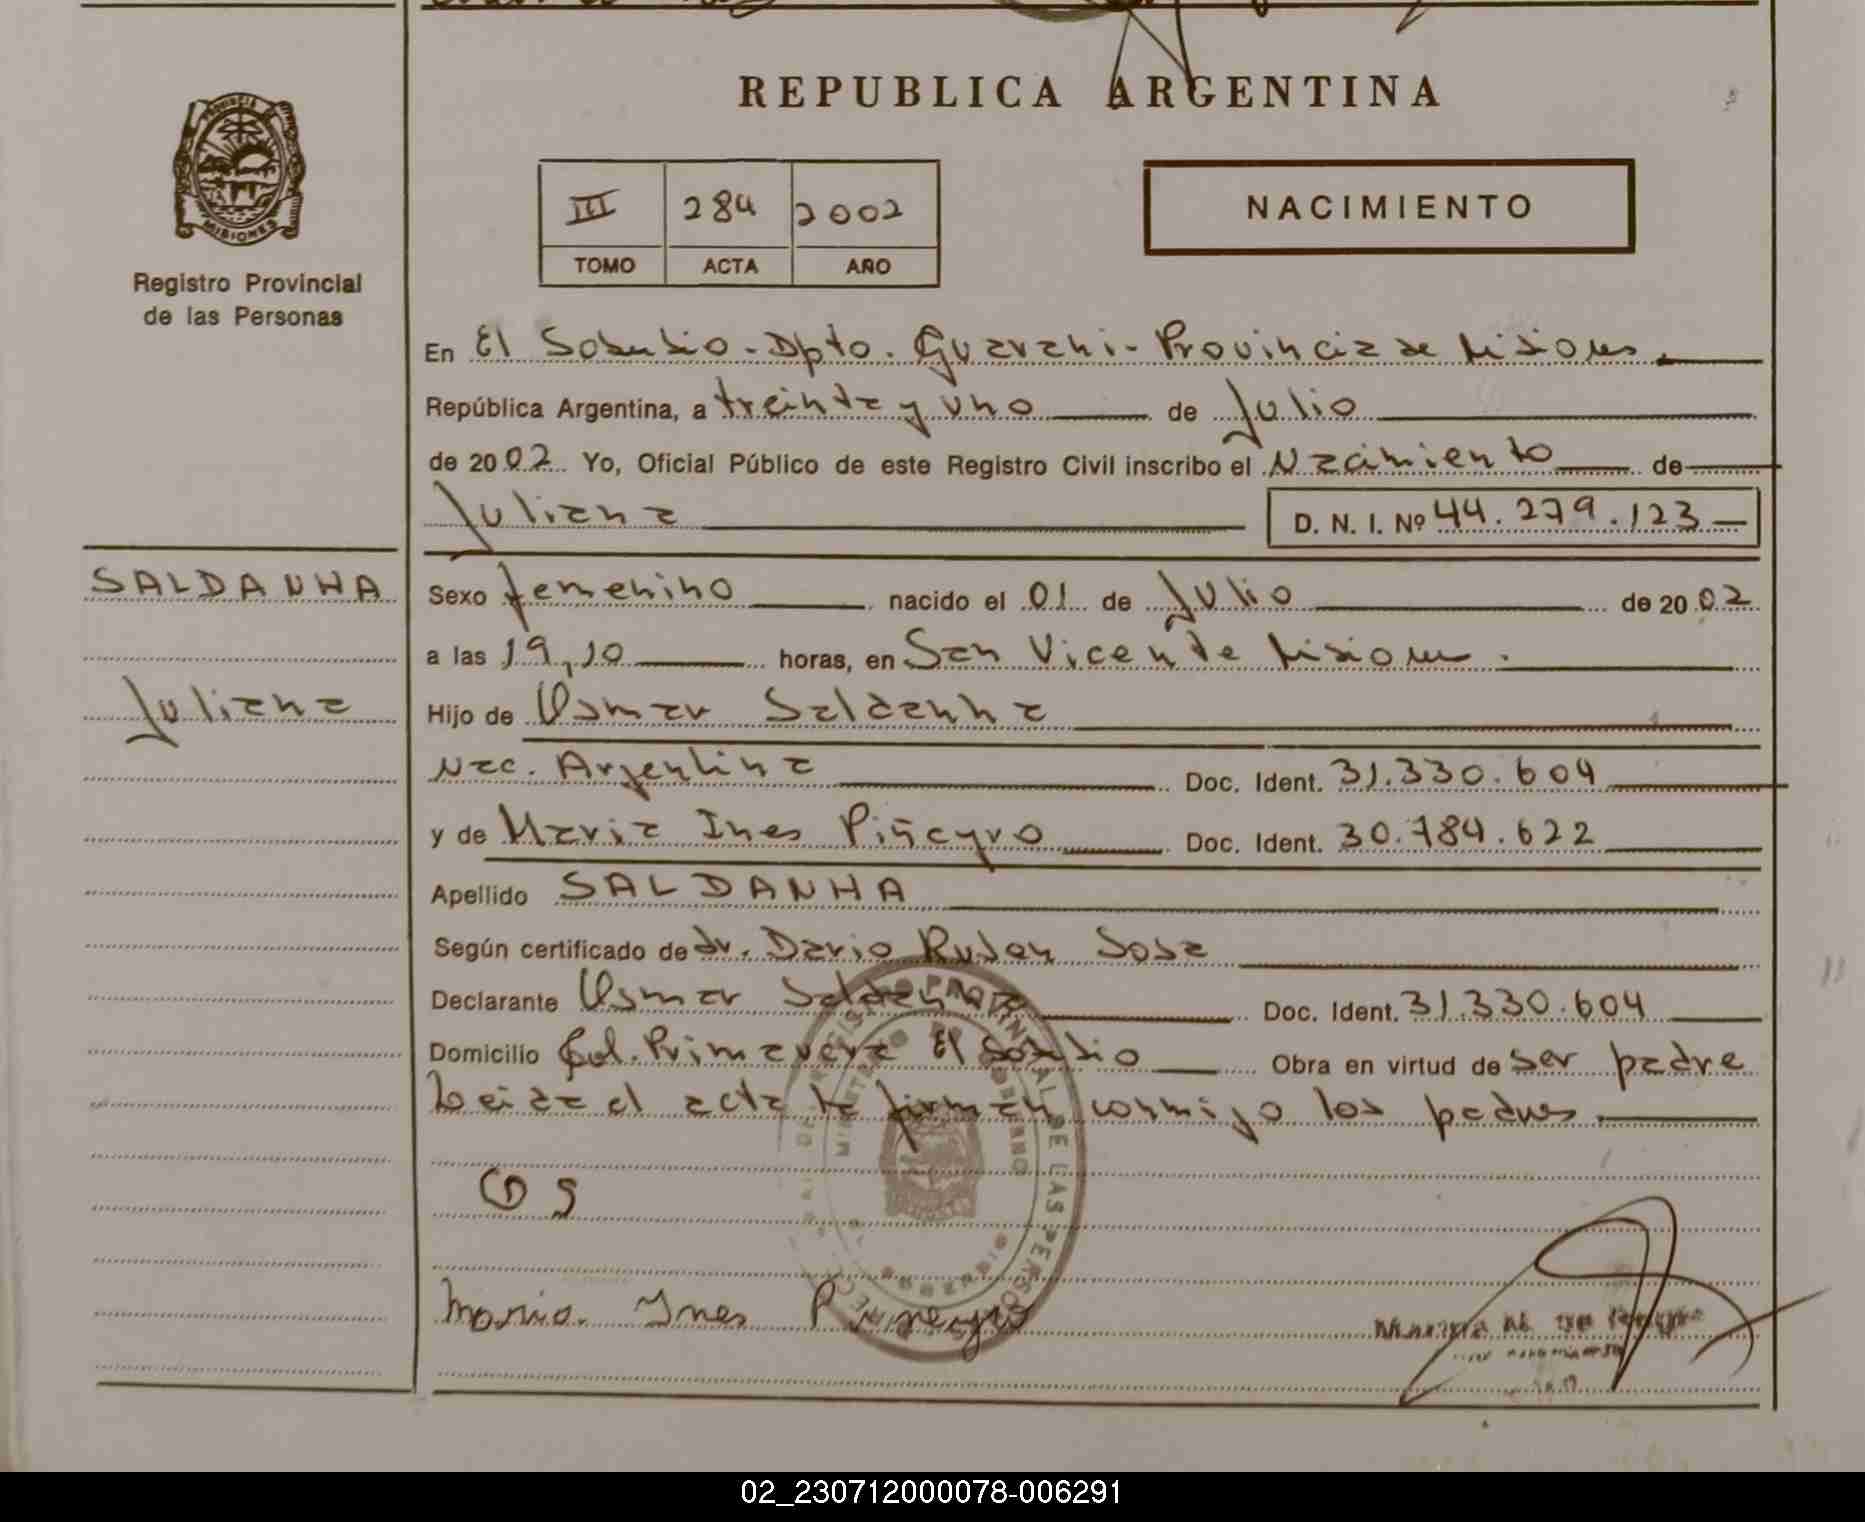 REPUBLICA ARGENTINA
PROVINCIA
MISIONES
Registro Provincial
de las Personas
III 284 2002
TOMO ACTA AÑO
NACIMIENTO
En El Soberbio - Dpto. Guarani - Provincia de Misiones.
República Argentina, a treinta y uno de Julio
de 2002 Yo, Oficial Público de este Registro Civil inscribo el Nacimiento de
Juliana D. N. I. Nº 44.279.123
SALDANHA
Juliana
Sexo femenino nacido el 01 de Julio de 2002
a las 19,10 horas, en San Vicente Misiones.
Hijo de Osmar Saldanha
Nac. Argentina Doc. Ident. 31.330.604
y de Maria Ines Piñeyro Doc. Ident. 30.784.622
Apellido SALDANHA
Según certificado de dr. Dario Ruben Sosa
Declarante Osmar Saldanha Doc. Ident. 31.330.604
Domicilio Col. Primavera El Soberbio Obra en virtud de ser padre
Leida el acta la firman conmigo los padres.
O S
Maria Ines Pineyro
REGISTRO PROVINCIAL DE LAS PERSONAS
MINISTERIO DE GOBIERNO
02_230712000078-006291